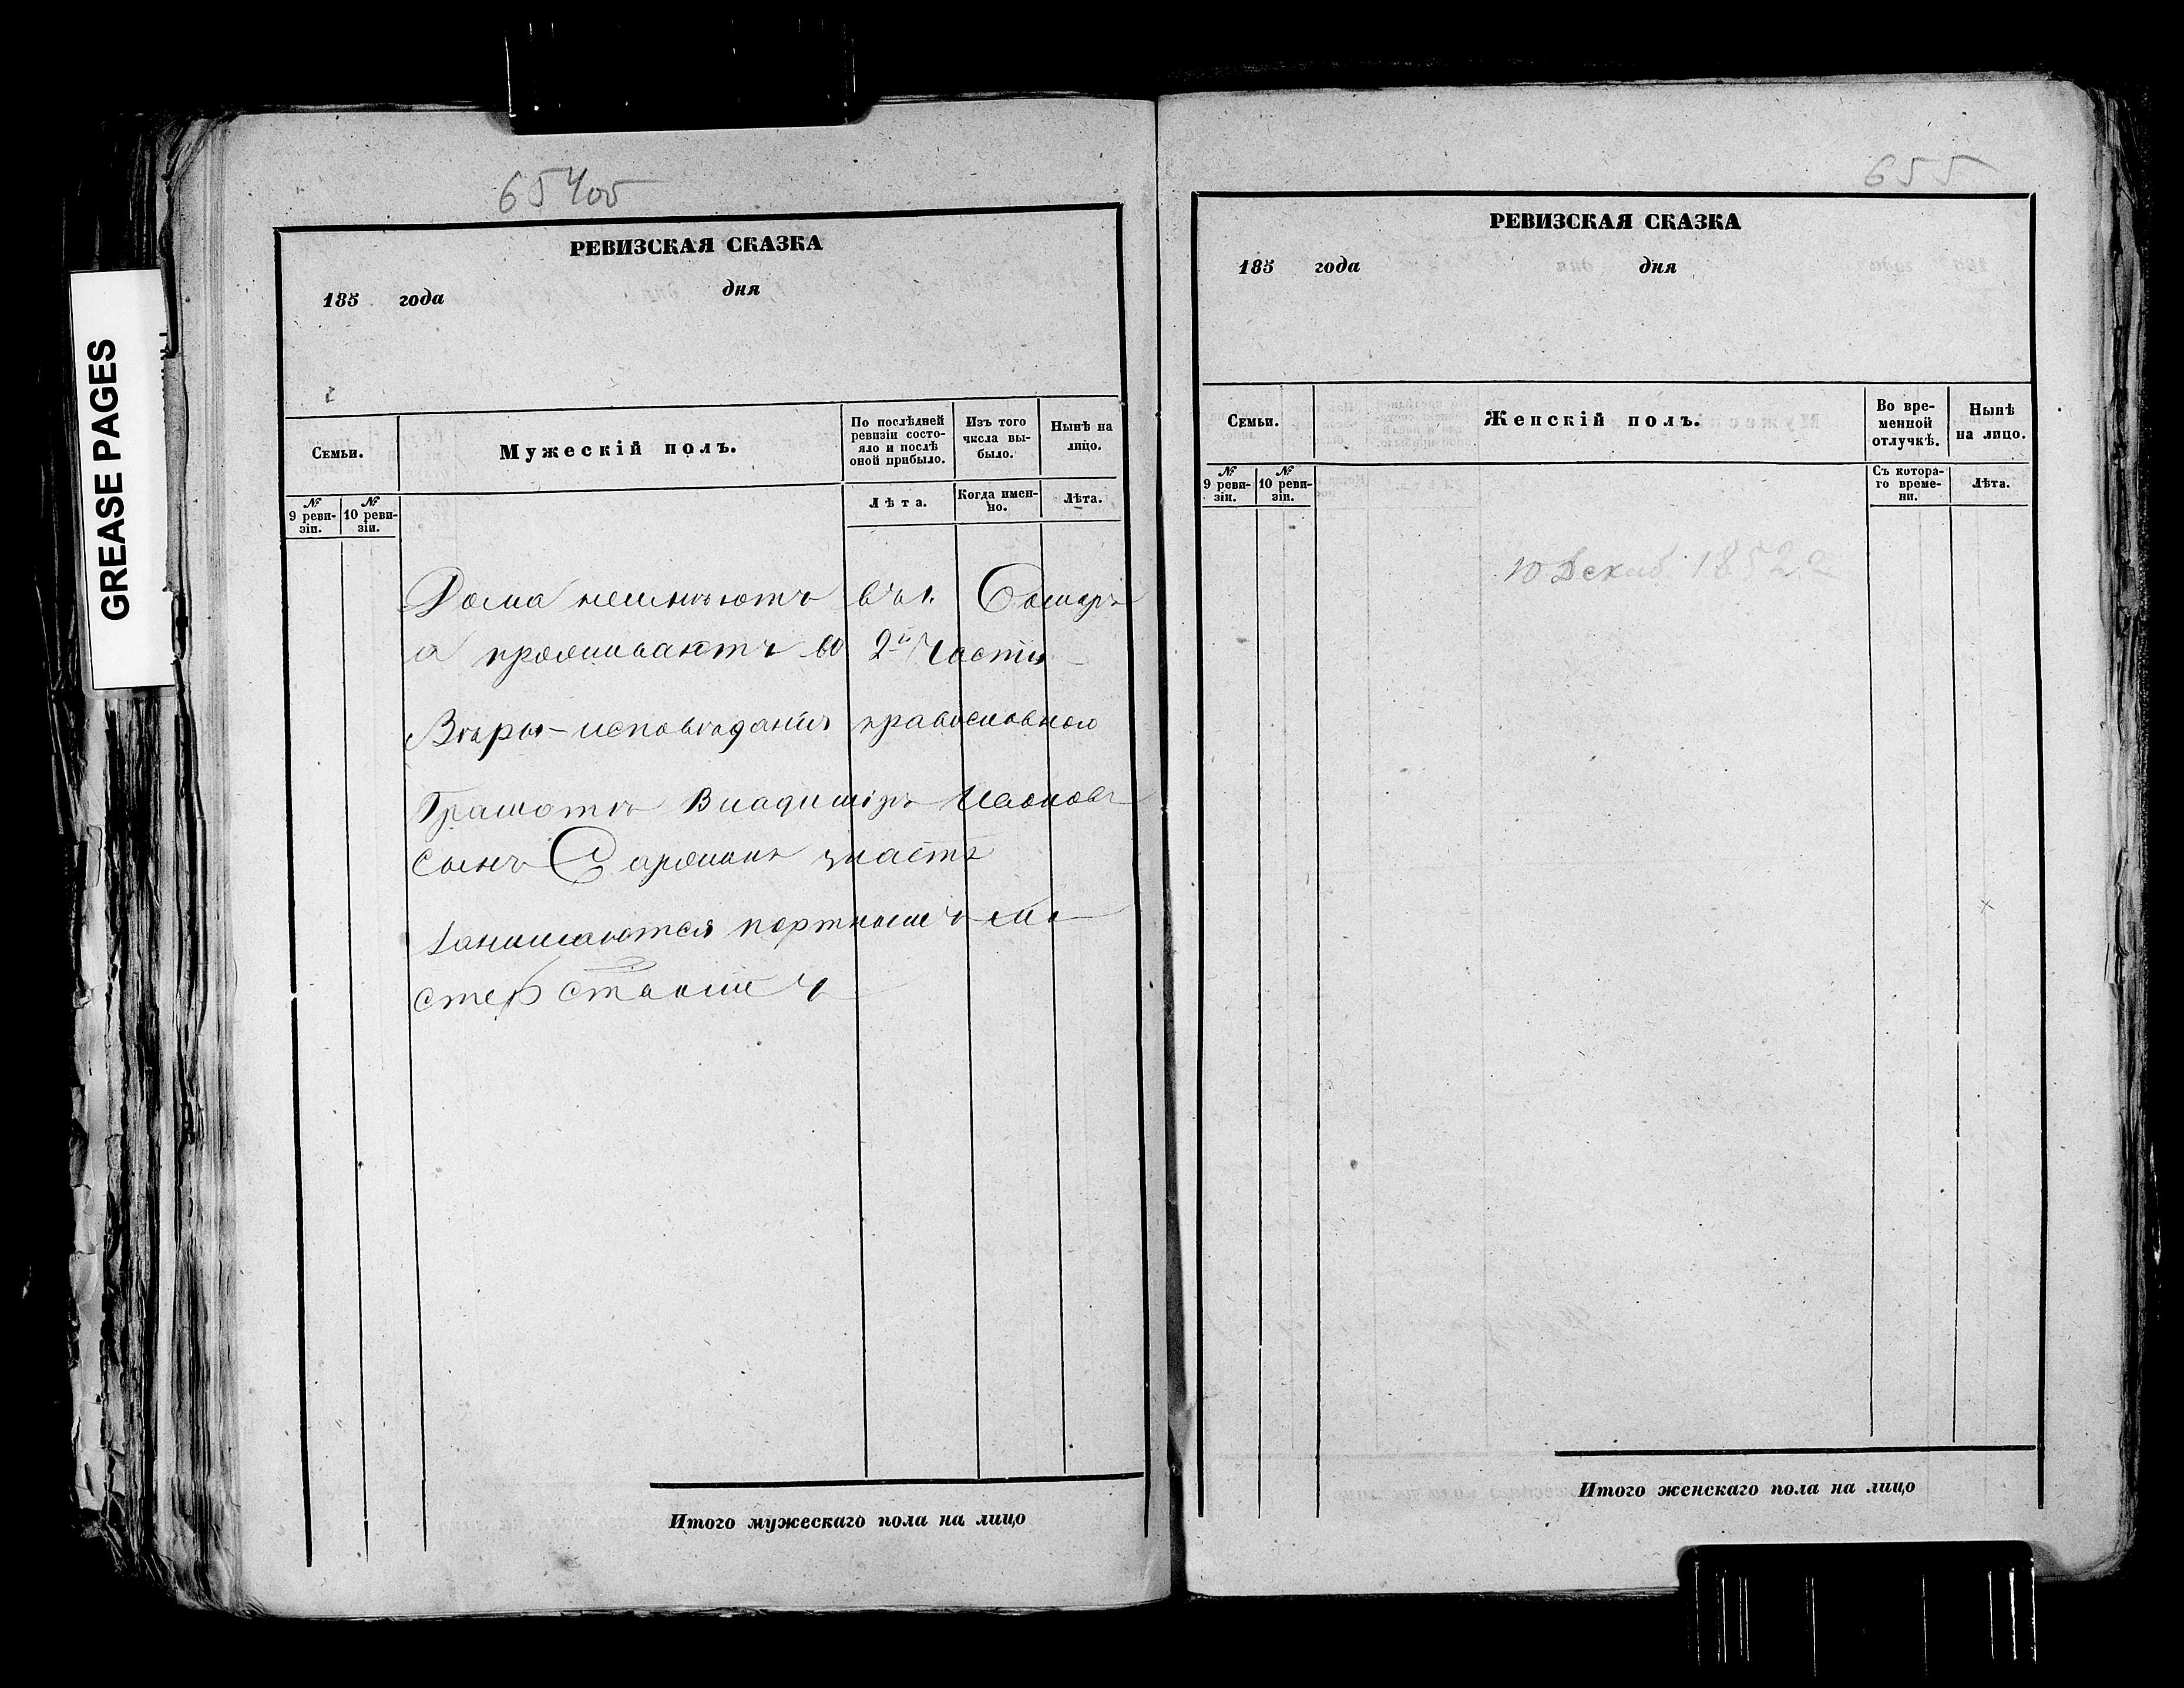 GREASE PAGES
654об
РЕВИЗСКАЯ СКАЗКА
185 года дня
Семьи.
Мужескій полъ.
По послѣдней ревизіи состояло и послѣ оной прибыло.
Изъ того числа выбыло.
Нынѣ на лицо.
№ 9 ревизіи.
№ 10 ревизіи.
Лѣта.
Когда именно.
Лѣта.
Дома неимѣютъ въ г. Самарѣ
а проживаютъ во 2й Части
Вѣры-исповѣданія православного
Грамотѣ Владиміръ Ивановъ
сынъ знаетъ
занимаются портнымъ ма
стерствомъ
Итого мужескаго пола на лицо
655
РЕВИЗСКАЯ СКАЗКА
185 года дня
Семьи.
Женскій полъ.
Во временной отлучкѣ.
Нынѣ на лицо.
№ 9 ревизіи.
№ 10 ревизіи.
Съ котораго времени.
Лѣта.
10 Декаб 1852 г
Итого женскаго пола на лицо